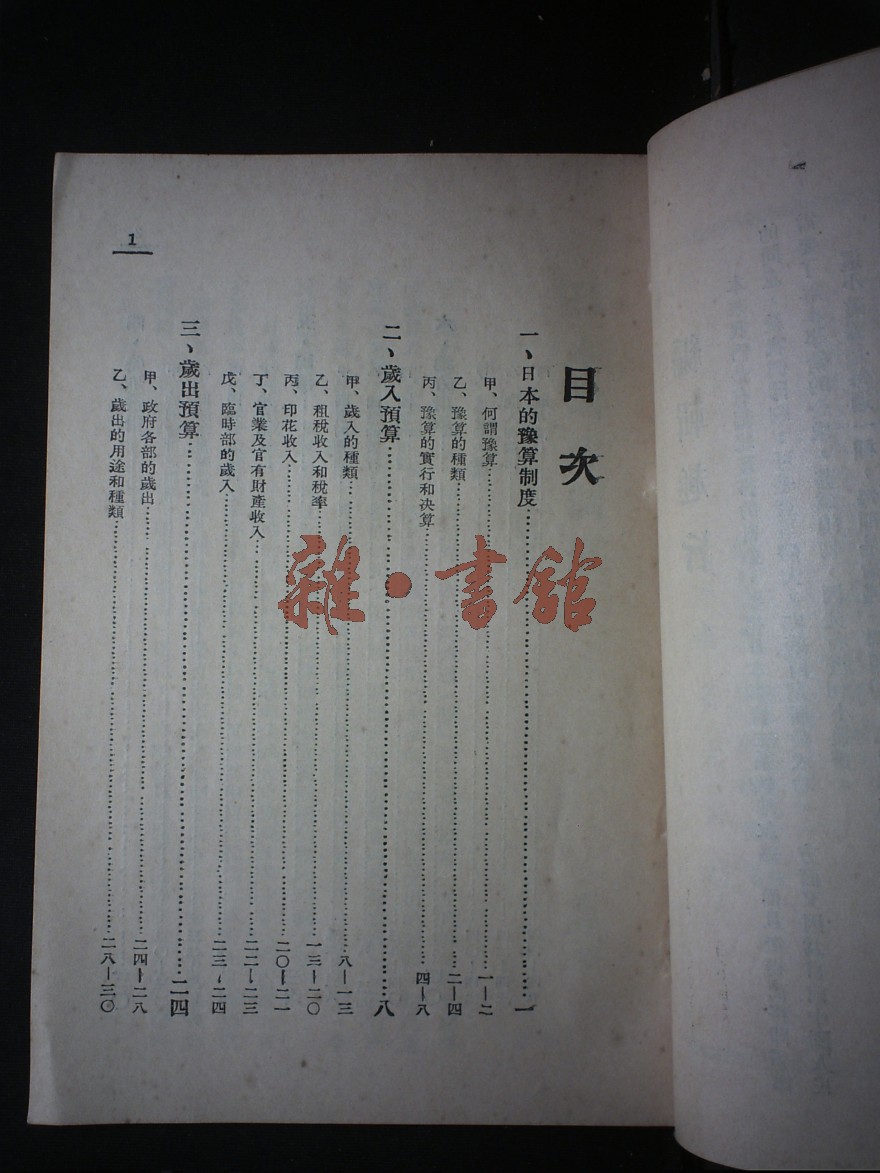 目次
一、日本的豫算制度……一
甲、何謂豫算……一—二
乙、豫算的種類……二—四
丙、豫算的實行和決算……四—八
二、歲入預算……八
甲、歲入的種類……八—一三
乙、租稅收入和稅率……一三—二〇
丙、印花收入……二〇—二一
丁、官業及官有財產收入……二二—二三
戊、臨時部的歲入……二三—二四
三、歲出預算……二四
甲、政府各部的歲出……二四—二八
乙、歲出的用途和種類……二八—三〇
1
雜·書館